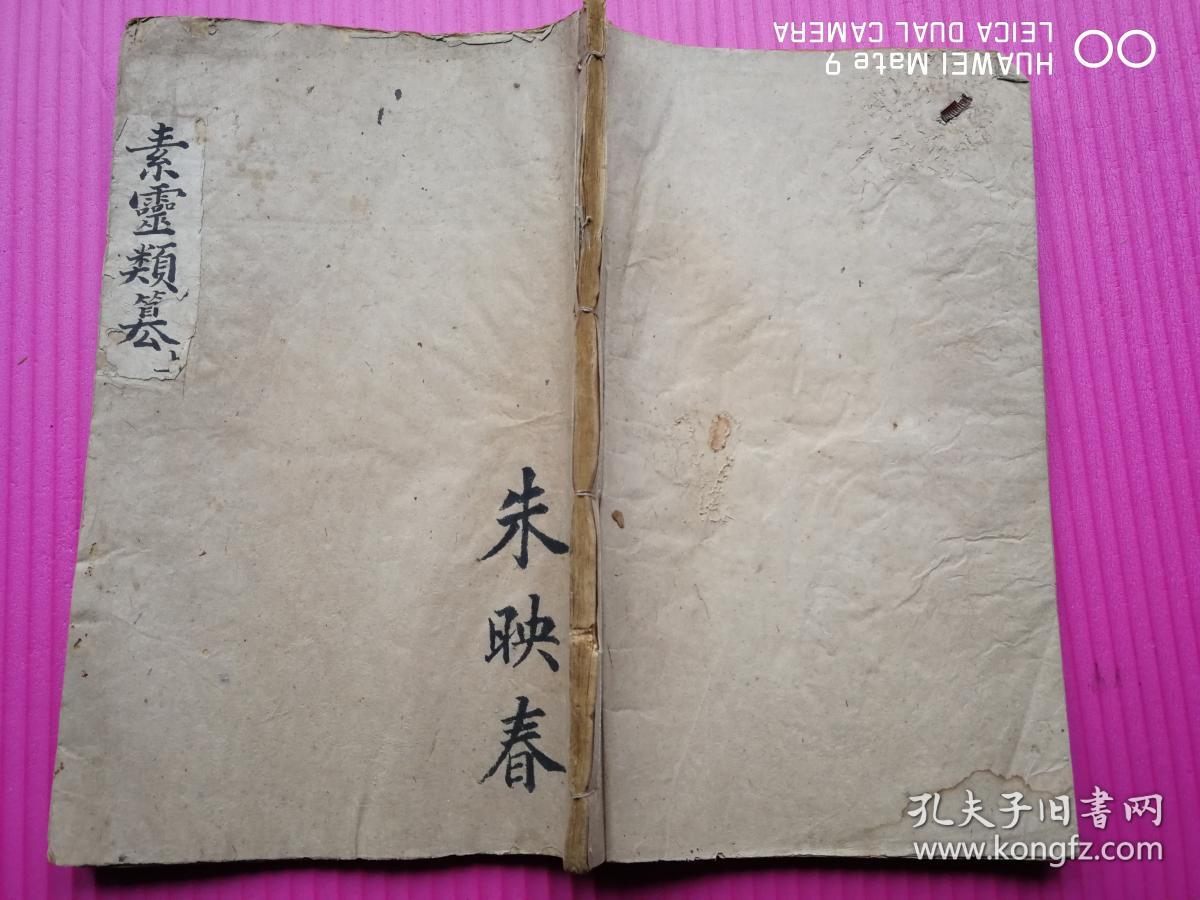 素靈類纂
上
朱映春
HUAWEI Mate 9
LEICA DUAL CAMERA
孔夫子旧书网
www.kongfz.com